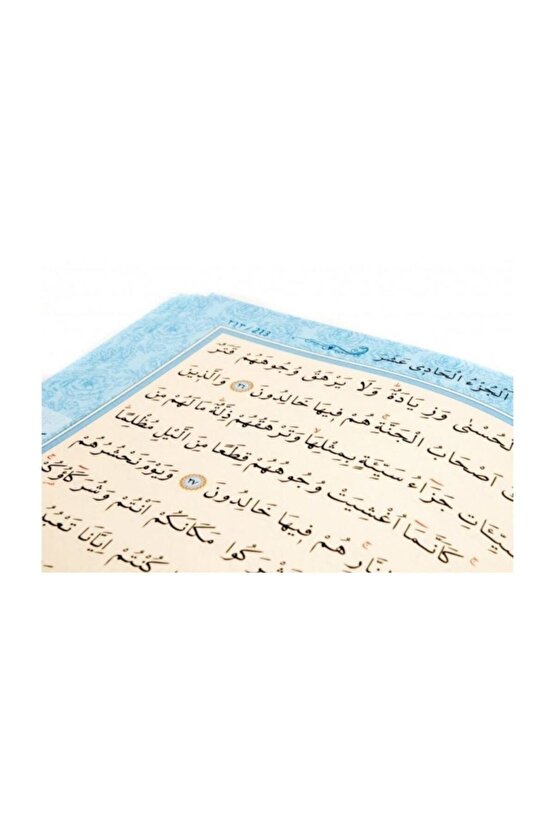 الجزء الحادى عشر ٢١٣ / 213
الْحُسْنٰى وَزِيَادَةٌ وَلَا يَرْهَقُ وُجُوهَهُمْ قَتَرٌ
اَصْحَابُ الْجَنَّةِ هُمْ فِيهَا خَالِدُونَ ٢٦ وَالَّذِينَ
جَزَٓاءُ سَيِّئَةٍ بِمِثْلِهَا وَتَرْهَقُهُمْ ذِلَّةٌ مَا لَهُمْ مِنَ
كَاَنَّمَٓا اُغْشِيَتْ وُجُوهُهُمْ قِطَعًا مِنَ الَّيْلِ مُظْلِمًا
هُمْ فِيهَا خَالِدُونَ ٢٧ وَيَوْمَ نَحْشُرُهُمْ
مَكَانَكُمْ اَنْتُمْ وَشُرَكَٓاؤُكُمْ
كُنْتُمْ اِيَّانَا تَعْبُدُونَ